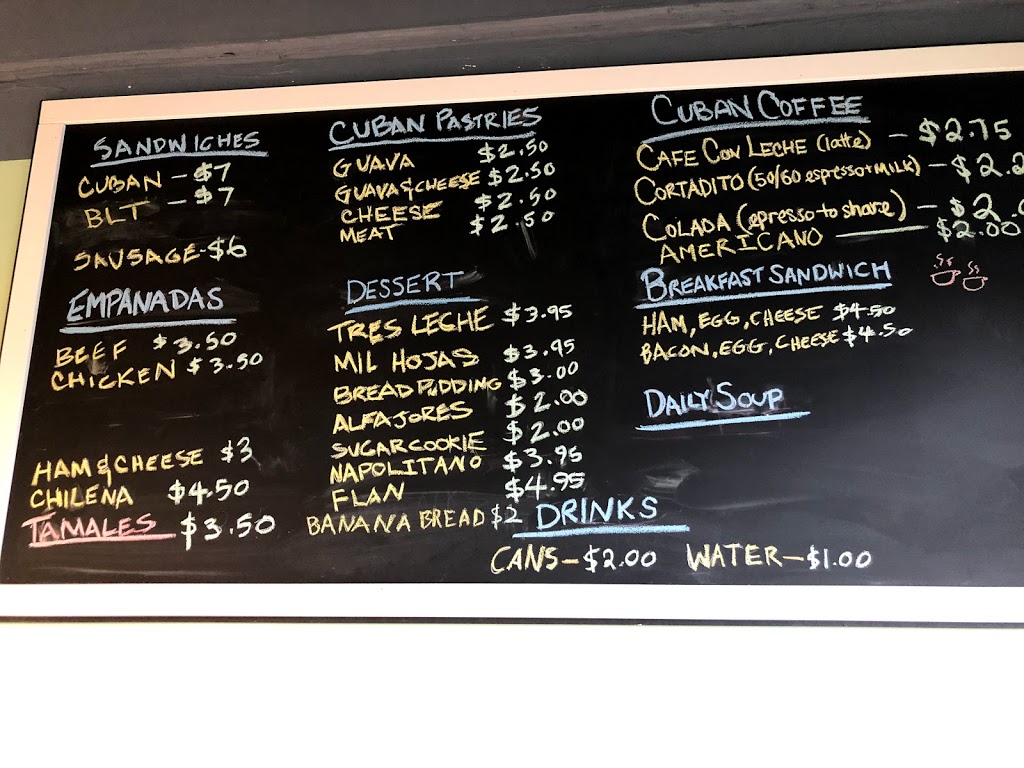 SANDWICHES
CUBAN - $7
BLT - $7
SAUSAGE - $6
EMPANADAS
BEEF $3.50
CHICKEN $3.50
HAM & CHEESE $3
CHILENA $4.50
TAMALES $3.50
CUBAN PASTRIES
GUAVA $2.50
GUAVA & CHEESE $2.50
CHEESE $2.50
MEAT $2.50
DESSERT
TRES LECHE $3.95
MIL HOJAS $3.95
BREAD PUDDING $3.00
ALFAJORES $2.00
SUGAR COOKIE $2.00
NAPOLITANO $3.95
FLAN $4.95
BANANA BREAD $2
CUBAN COFFEE
CAFE CON LECHE (latte) - $2.75
CORTADITO (50/60 espresso+MILK) - $2.2
COLADA (epresso to share) - $2.
AMERICANO — $2.00
BREAKFAST SANDWICH
HAM, EGG, CHEESE $4.50
BACON, EGG, CHEESE $4.50
DAILY SOUP
DRINKS
CANS - $2.00 WATER - $1.00